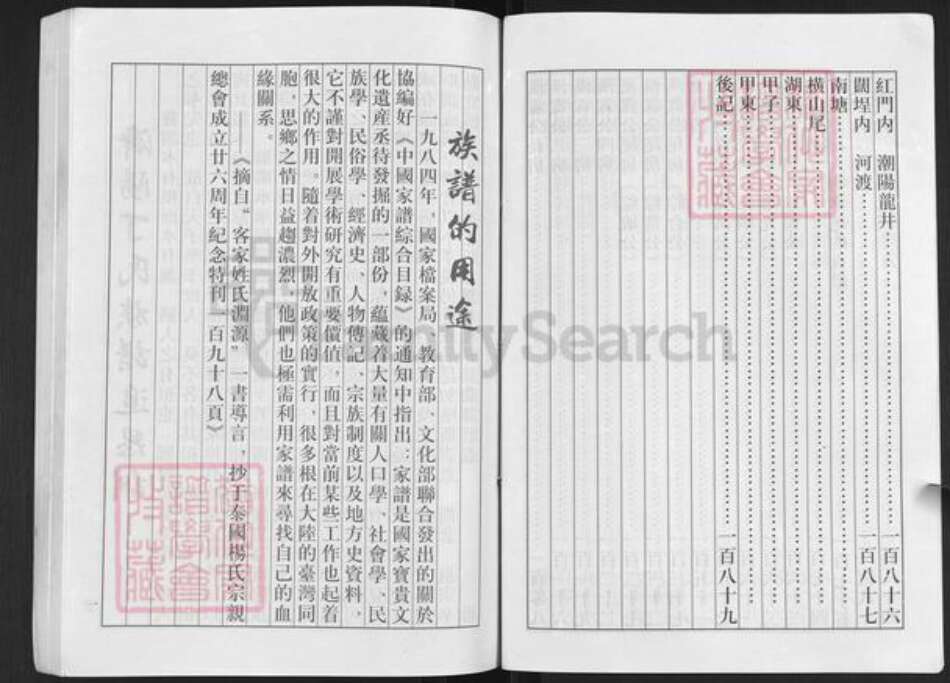 紅門內　潮陽龍井……一百八十六
闊埕內　河渡……一百八十七
南塘……
橫山尾……
湖東……
甲子……
甲東……
後記……一百八十九
族譜的用途
一九八四年，國家檔案局、教育部、文化部聯合發出的關於
協編好《中國家譜綜合目録》的通知中指出：家譜是國家寶貴文
化遺産丞待發掘的一部份，蘊藏着大量有關人口學、社會學、民
族學、民俗學、經濟史、人物傳記、宗族制度以及地方史資料，
它不謹對開展學術研究有重要價值，而且對當前某些工作也起着
很大的作用。隨着對外開放政策的實行，很多根在大陸的臺灣同
胞，思鄉之情日益趨濃烈，他們也極需利用家譜來尋找自己的血
緣關系。
——《摘自“客家姓氏淵源”一書導言，抄于泰國楊氏宗親
總會成立廿六周年紀念特刊一百九十八頁》
FamilySearch